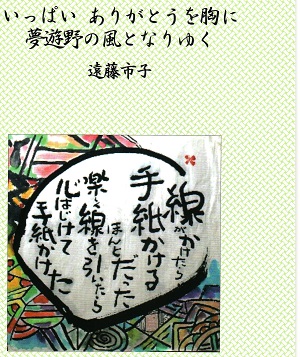 いっぱい ありがとうを胸に
夢遊野の風となりゆく
遠藤市子
線がかけたら
手紙かける
ほんとだった
楽しく線を引いたら
心はじけて
手紙かけた